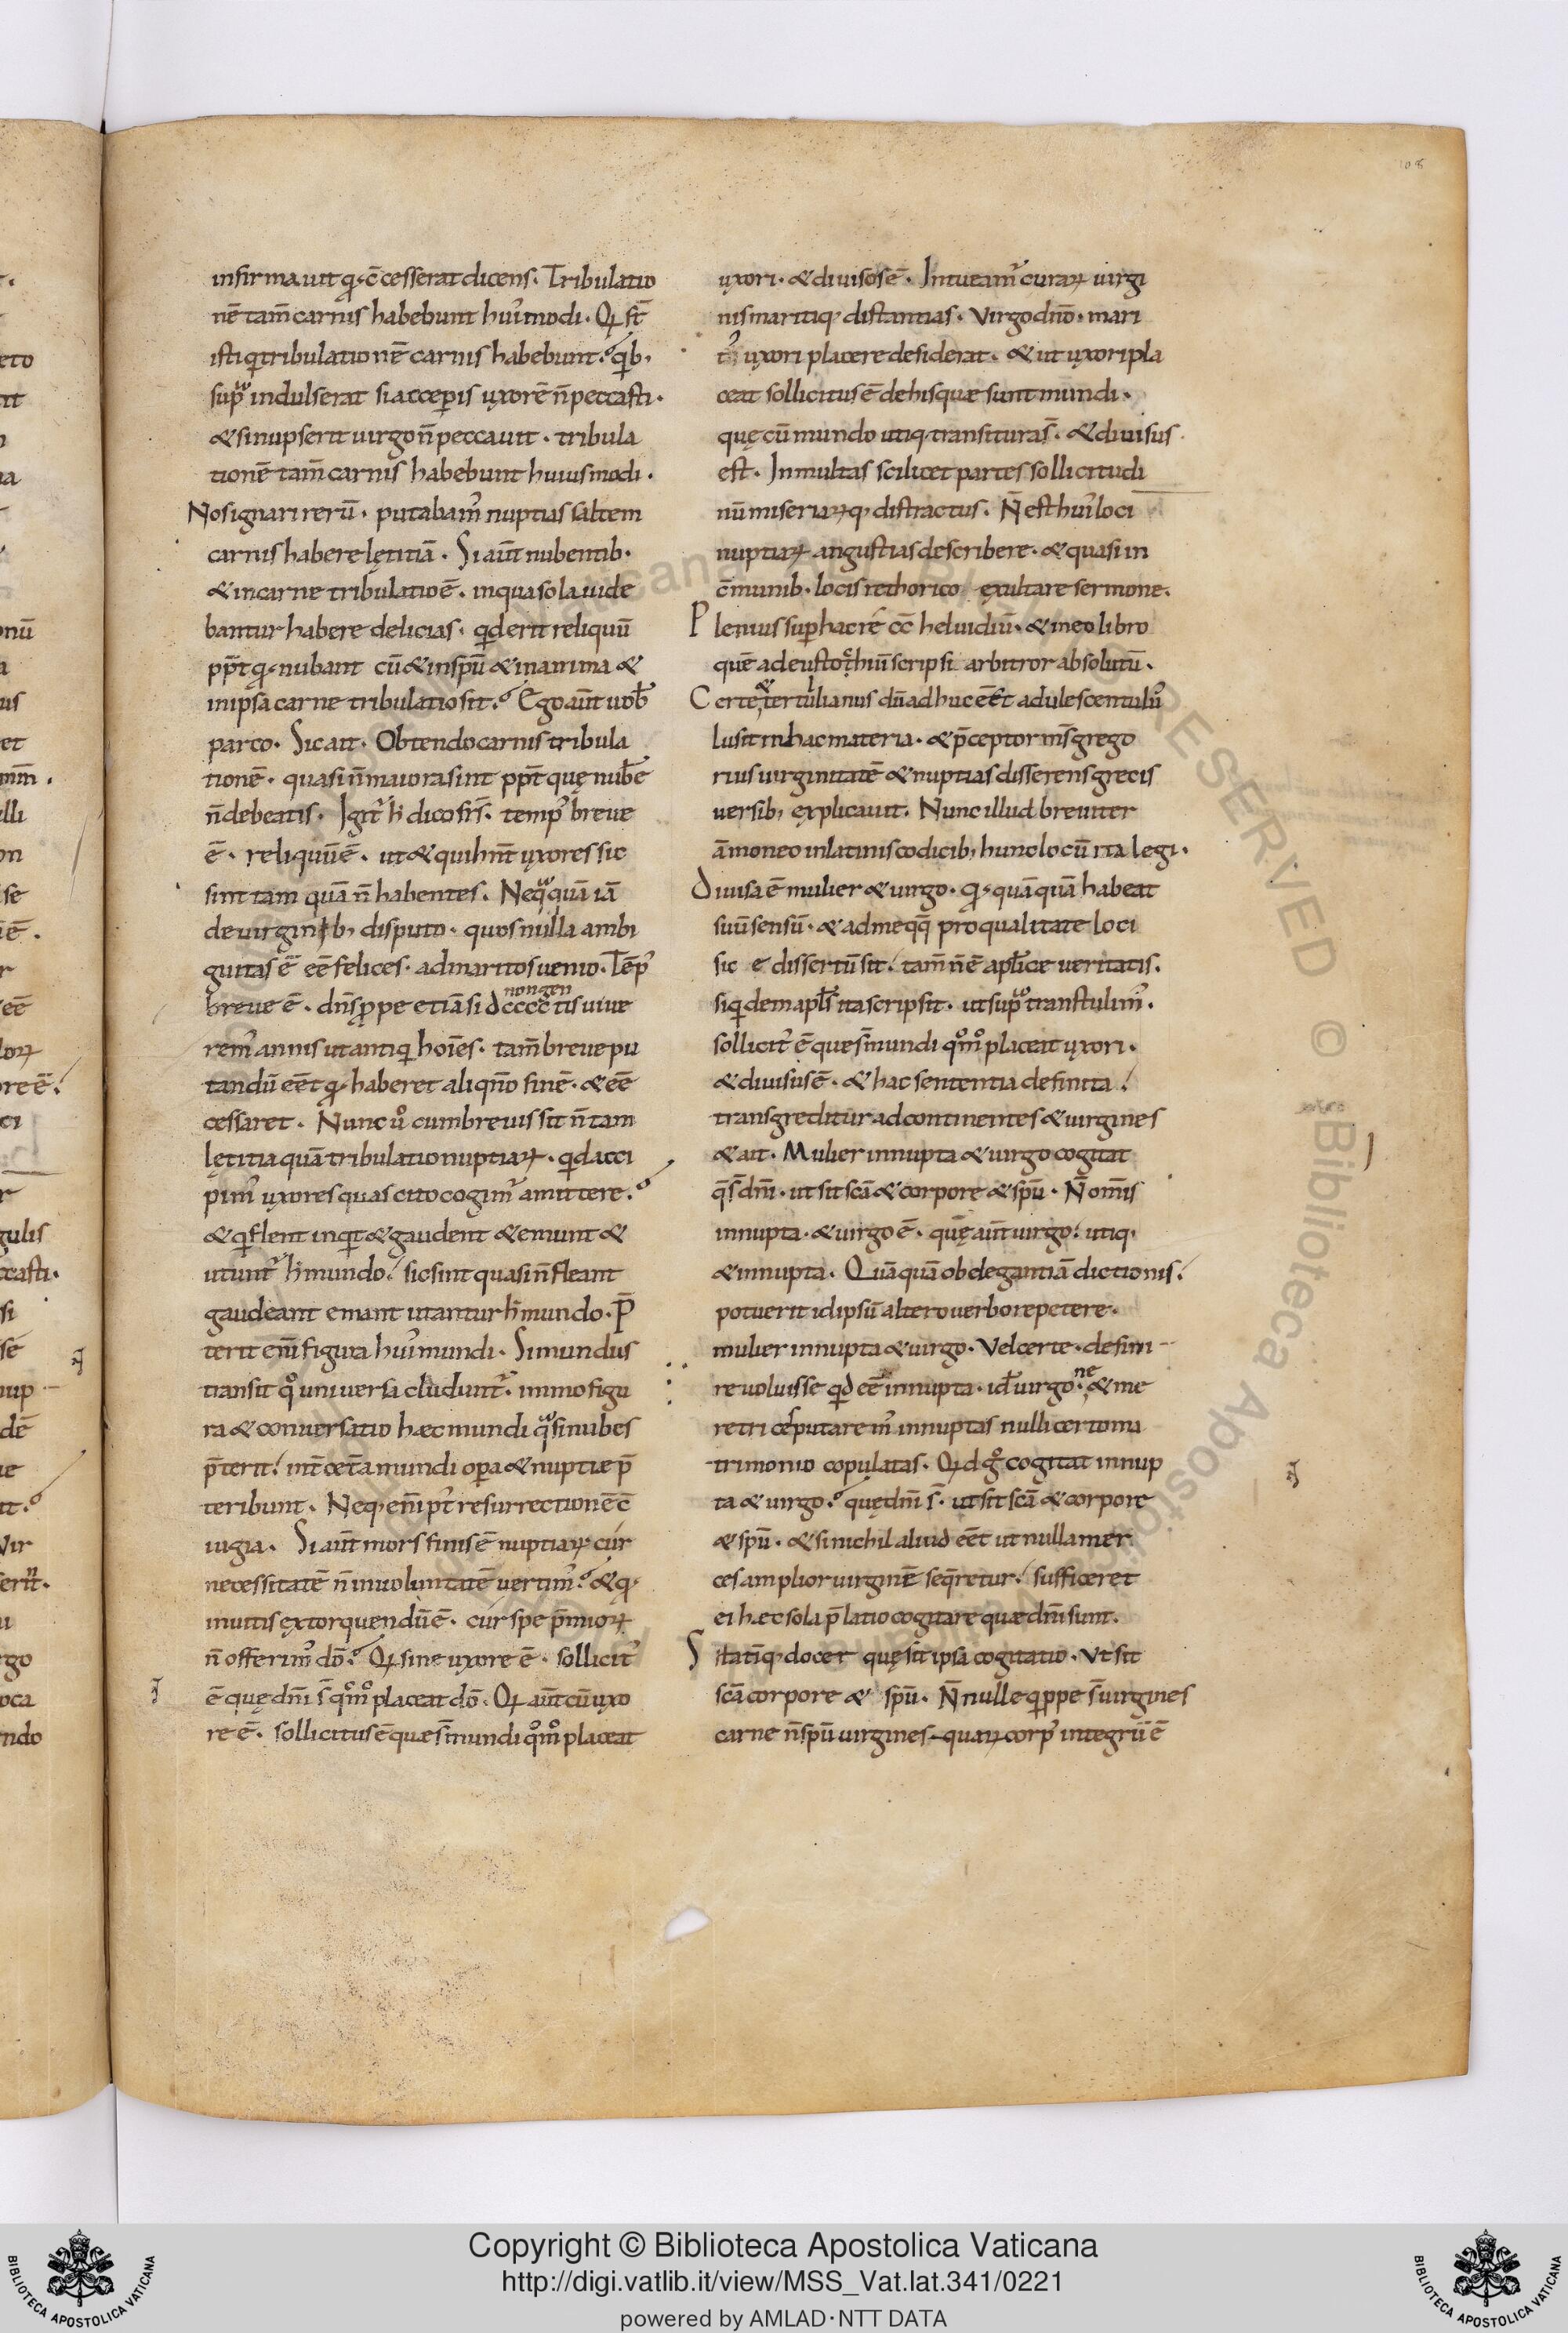 108
infirmauit qđ c̄cesserat dicens. Tribulatio
nē tam̄ carnis habebunt hui᷒modi. Qi sт̄
isti qi tribulationē carnis habebunt? qib;
sup̱ᵃ indulserat si acceperis uxorē n̄ peccasti.
& si nupserit uirgo n̄ peccauit. tribula
tionē tam̄ carnis habebunt huiusmodi.
Nos ignari rerū. putabam᷒ nuptias saltem
carnis habere lętitiā. Si aūt nubentib;
& in carne tribulatio ē. in qua sola uide
bantur habere delicias. qid erit reliquū
pp̄t qđ nubant cū & in sp̄u & in anima &
in ipsa carne tribulatio sit? Ego aūt uob̄
parco. Sic ait. Obtendo carnis tribula
tionē. quasi n̄ maiora sint pp̄t quę nub̄e
n̄ debeatis. Igit᷒ h̄ dico frs̄. temp᷒ breue
ē. reliquū ē. ut & qui hn̄t uxores sic
sint tam quā n̄ habentes. Neqᵃquā iā
de uirginib; disputo. quos nulla ambi
guitas ē eē felices. ad maritos uenio. Tēp᷒
breue ē. dn̄s p̱pe etiā si dccccctis uiue
nongen
rem᷒ annis ut antiqi hoīes. tam̄ breue pu
tandū eēt qđ haberet aliqn̄o finē. & eē
cessaret. Nunc uᵒ cum breuis sit n̄ tam
lętitia quā tribulatio nuptiaꝝ. qid acci
pim᷒ uxores quas cito cogim᷒ amittere?
& qi flent inqit & gaudent & emunt &
utunt᷒ h̄ mundo. sic sint quasi n̄ fleant
gaudeant emant utantur h̄ mundo. P̄
terit en̄i figura hui᷒ mundi. Si mundus
transit qᵒ uniuersa cludunt᷒. immo figu
ra & conuersatio hæc mundi qᵃsi nubes
p̄terit. int̄ cet̄a mundi oꝑa & nuptiæ p̄
teribunt. Neq; en̄i p᷒t resurrectionē ē c̄
iugia. Si aūt mors finis ē nuptiaꝝ cur
necessitatē n̄ in uoluntatē uertim᷒? & qđ
inuitis extorquendū ē. cur spe p̄mioꝝ
n̄ offerim᷒ dō? Qi sine uxore ē. sollicit᷒
ē quę dn̄i s̄ qᵒmᵒ placeat dō. Qi aūt cū uxo
re ē. sollicitus ē quæ s̄ mundi qᵒmᵒ placeat
uxori. & diuisus ē. Intueam᷒ curaꝝ uirgi
nis maritiq; distantias. Virgo dn̄o. mari
t᷒ uxori placere desiderat. & ut uxori pla
ceat sollicitus ē de his quæ sunt mundi.
quę cū mundo utiq; transitura s̄. & diuisus
est. In multas scilicet partes sollicitudi
nū miseriaꝝq; distractus. N̄ est hui᷒ loci
nuptiaꝝ angustias describere. & quasi in
c̄munib; locis rethorico exultare sermone.
Plenius suꝑ hac re cc̄ heluidiū. & in eo libro
quē ad eustochiū scripsi arbitror absolutū.
Certe & tertullianus dū adhuc eēt adulescentulu᷒
lusit in hac materia. & p̄ceptor ms̄ grego
rius uirginitatē & nuptias disserens grecis
uersib; explicauit. Nunc illud breuiter
ām̄oneo in latinis codicib; hunc locū ita legi.
Diuisa ē mulier & uirgo. qđ quāquā habeat
suū sensū. & a me qq̄ pro qualitate loci
sic e dissertū sit. tam̄ n̄ ē apl̄icæ ueritatis.
siqidem apl̄s ita scripsit. ut supᵃ transtulim᷒.
sollicit᷒ ē que s̄ mundi qᵒmᵒ placeat uxori.
& diuisus ē. & hac sententia definita.
transgreditur ad continentes & uirgines
& ait. Mulier innupta & uirgo cogitat
q̄ s̄ dn̄i. ut sit sc̄a & corpore & sp̄u. N̄ omīs
innupta. & uirgo ē. quę aūt uirgo. utiq;
& innupta. Quāquā ob elegantiā dictionis.
potuerit id ipsū altero uerbo repetere.
mulier innupta & uirgo. Vel certe. defini-
re uoluisse qid eē innupta. id ē uirgo. ne & me
retrices putarem᷒ innuptas nulli certo ma
trimonio copulatas. Qid gᵒ cogitat innup
ta & uirgo? quę dn̄i s̄. ut sit sc̄a & corpore
& sp̄u. & si nichil aliud eēt ut nulla mer
ces amplior uirginē seq̄retur. sufficeret
ei hæc sola p̄latio cogitare quæ dn̄i sunt.
Statīq; docet quę sit ipsa cogitatio. Vt sit
sc̄a corpore & sp̄u. N̄nulle qippe s̄ uirgines
carne n̄ sp̄u uirgines quaꝝ corp᷒ integrū ē
Copyright © Biblioteca Apostolica Vaticana
http://digi.vatlib.it/view/MSS_Vat.lat.341/0221
powered by AMLAD·NTT DATA
BIBLIOTECA APOSTOLICA VATICANA
BIBLIOTECA APOSTOLICA VATICANA